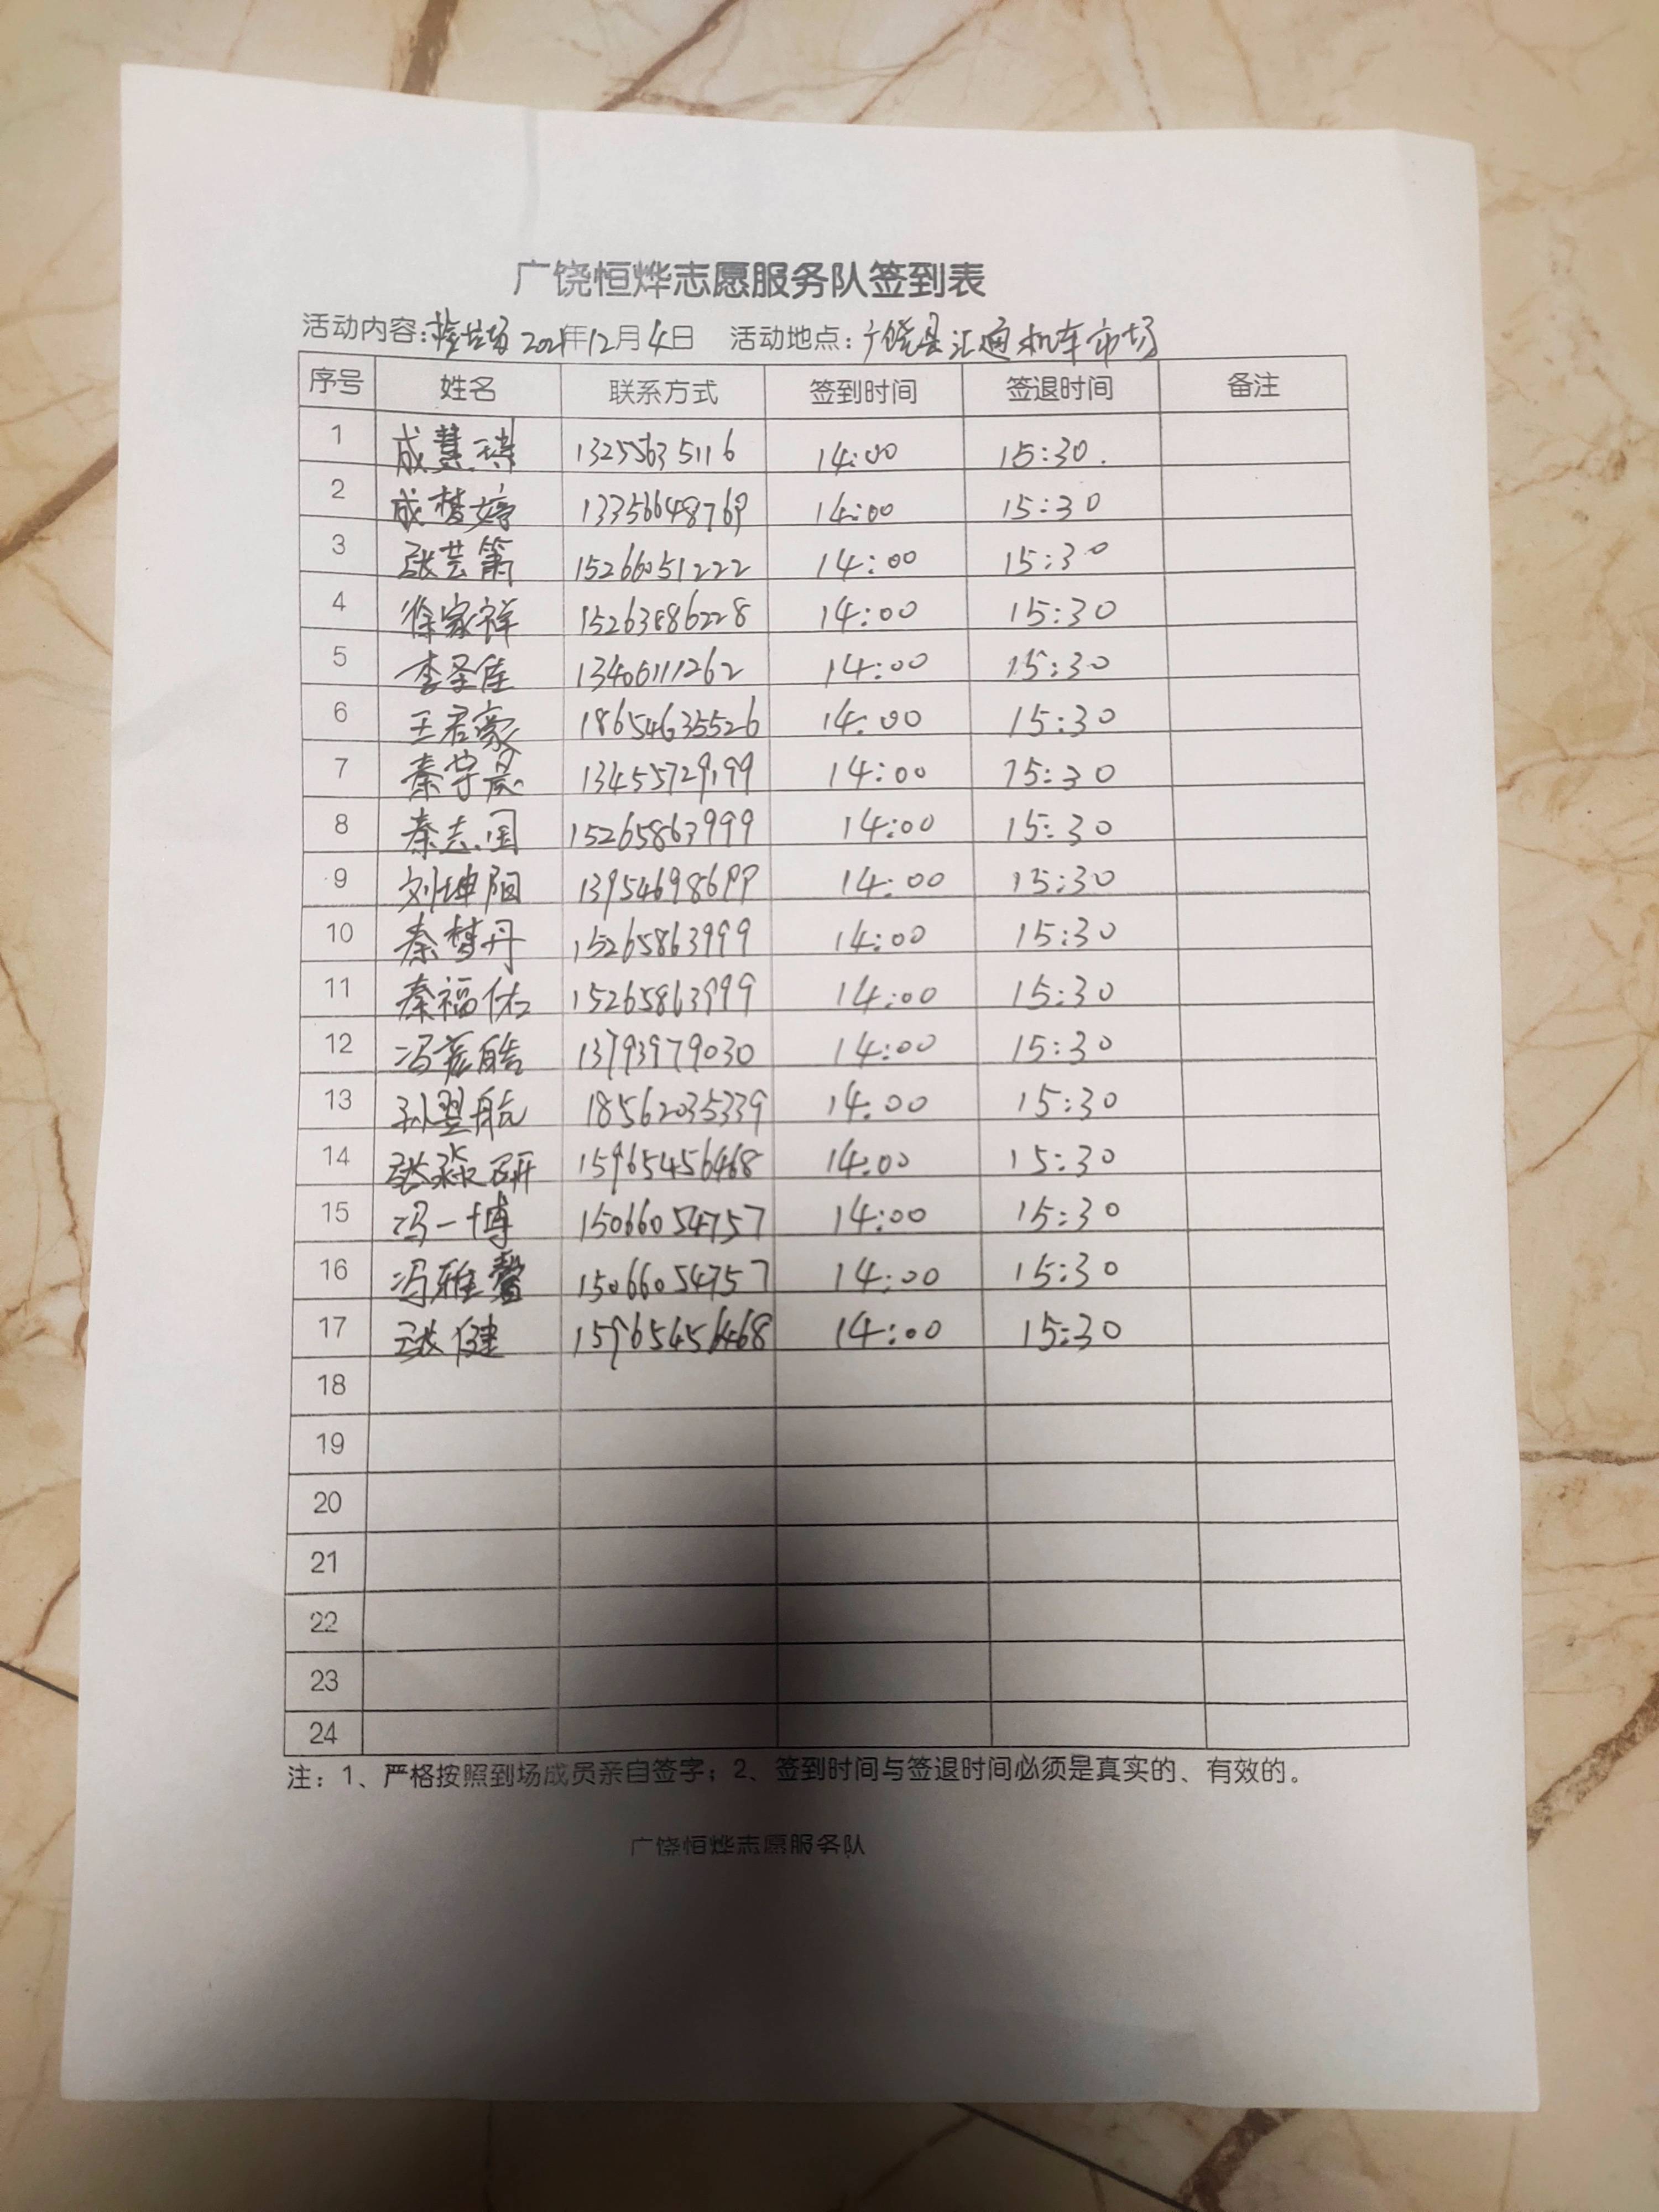 广饶恒烨志愿服务队签到表
活动内容: 2021年12月4日 活动地点:广饶县汇通机车市场
序号 姓名 联系方式 签到时间 签退时间 备注
1 成慧琪 13255635116 14:00 15:30.
2 成梦婷 13356648769 14:00 15:30
3 张芸箫 15266051222 14:00 15:30
4 徐家祥 15263886228 14:00 15:30
5 李圣佳 13406111262 14:00 15:30
6 王君豪 18654635526 14:00 15:30
7 秦字晨 13455729199 14:00 15:30
8 秦志国 15265863999 14:00 15:30
9 刘坤阳 13954698699 14:00 15:30
10 秦梦丹 15265863999 14:00 15:30
11 秦福佑 15265863999 14:00 15:30
12 冯 皓 13793979030 14:00 15:30
13 孙翌航 18562035339 14:00 15:30
14 张淼研 15965456468 14:00 15:30
15 冯一博 15066054757 14:00 15:30
16 冯雅馨 15066054757 14:00 15:30
17 张健 15965456468 14:00 15:30
18
19
20
21
22
23
24
注：1、严格按照到场成员亲自签字；2、签到时间与签退时间必须是真实的、有效的。
广饶恒烨志愿服务队